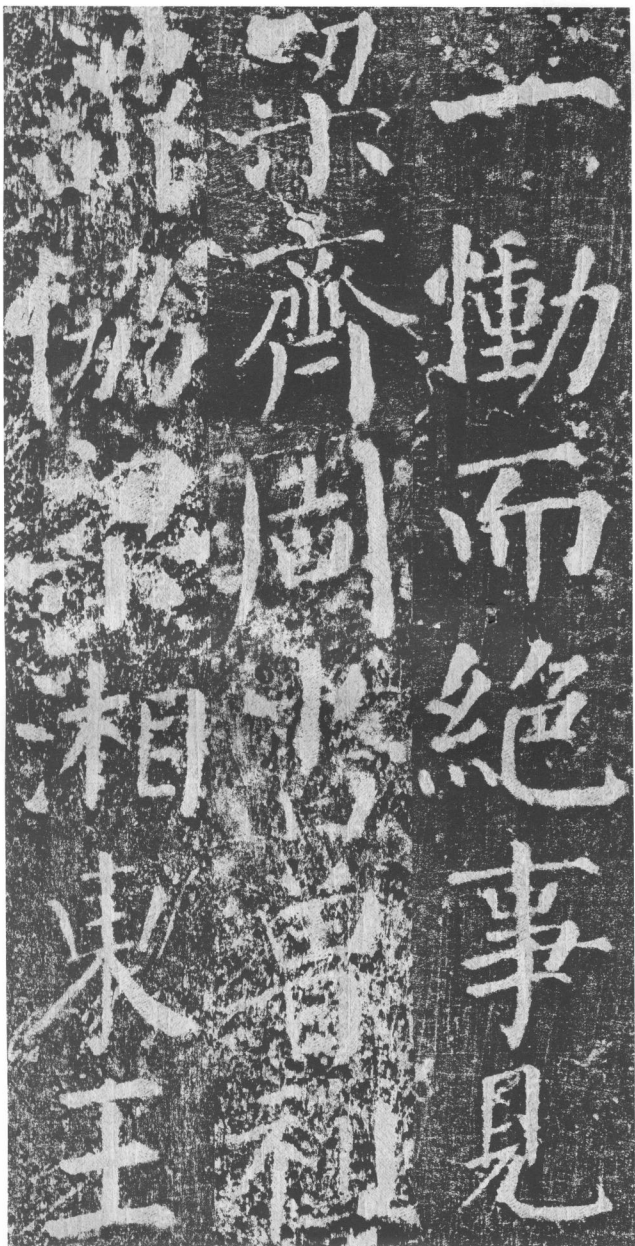 一慟而絕事見
梁齊周書曾祖
諱恊梁湘東王